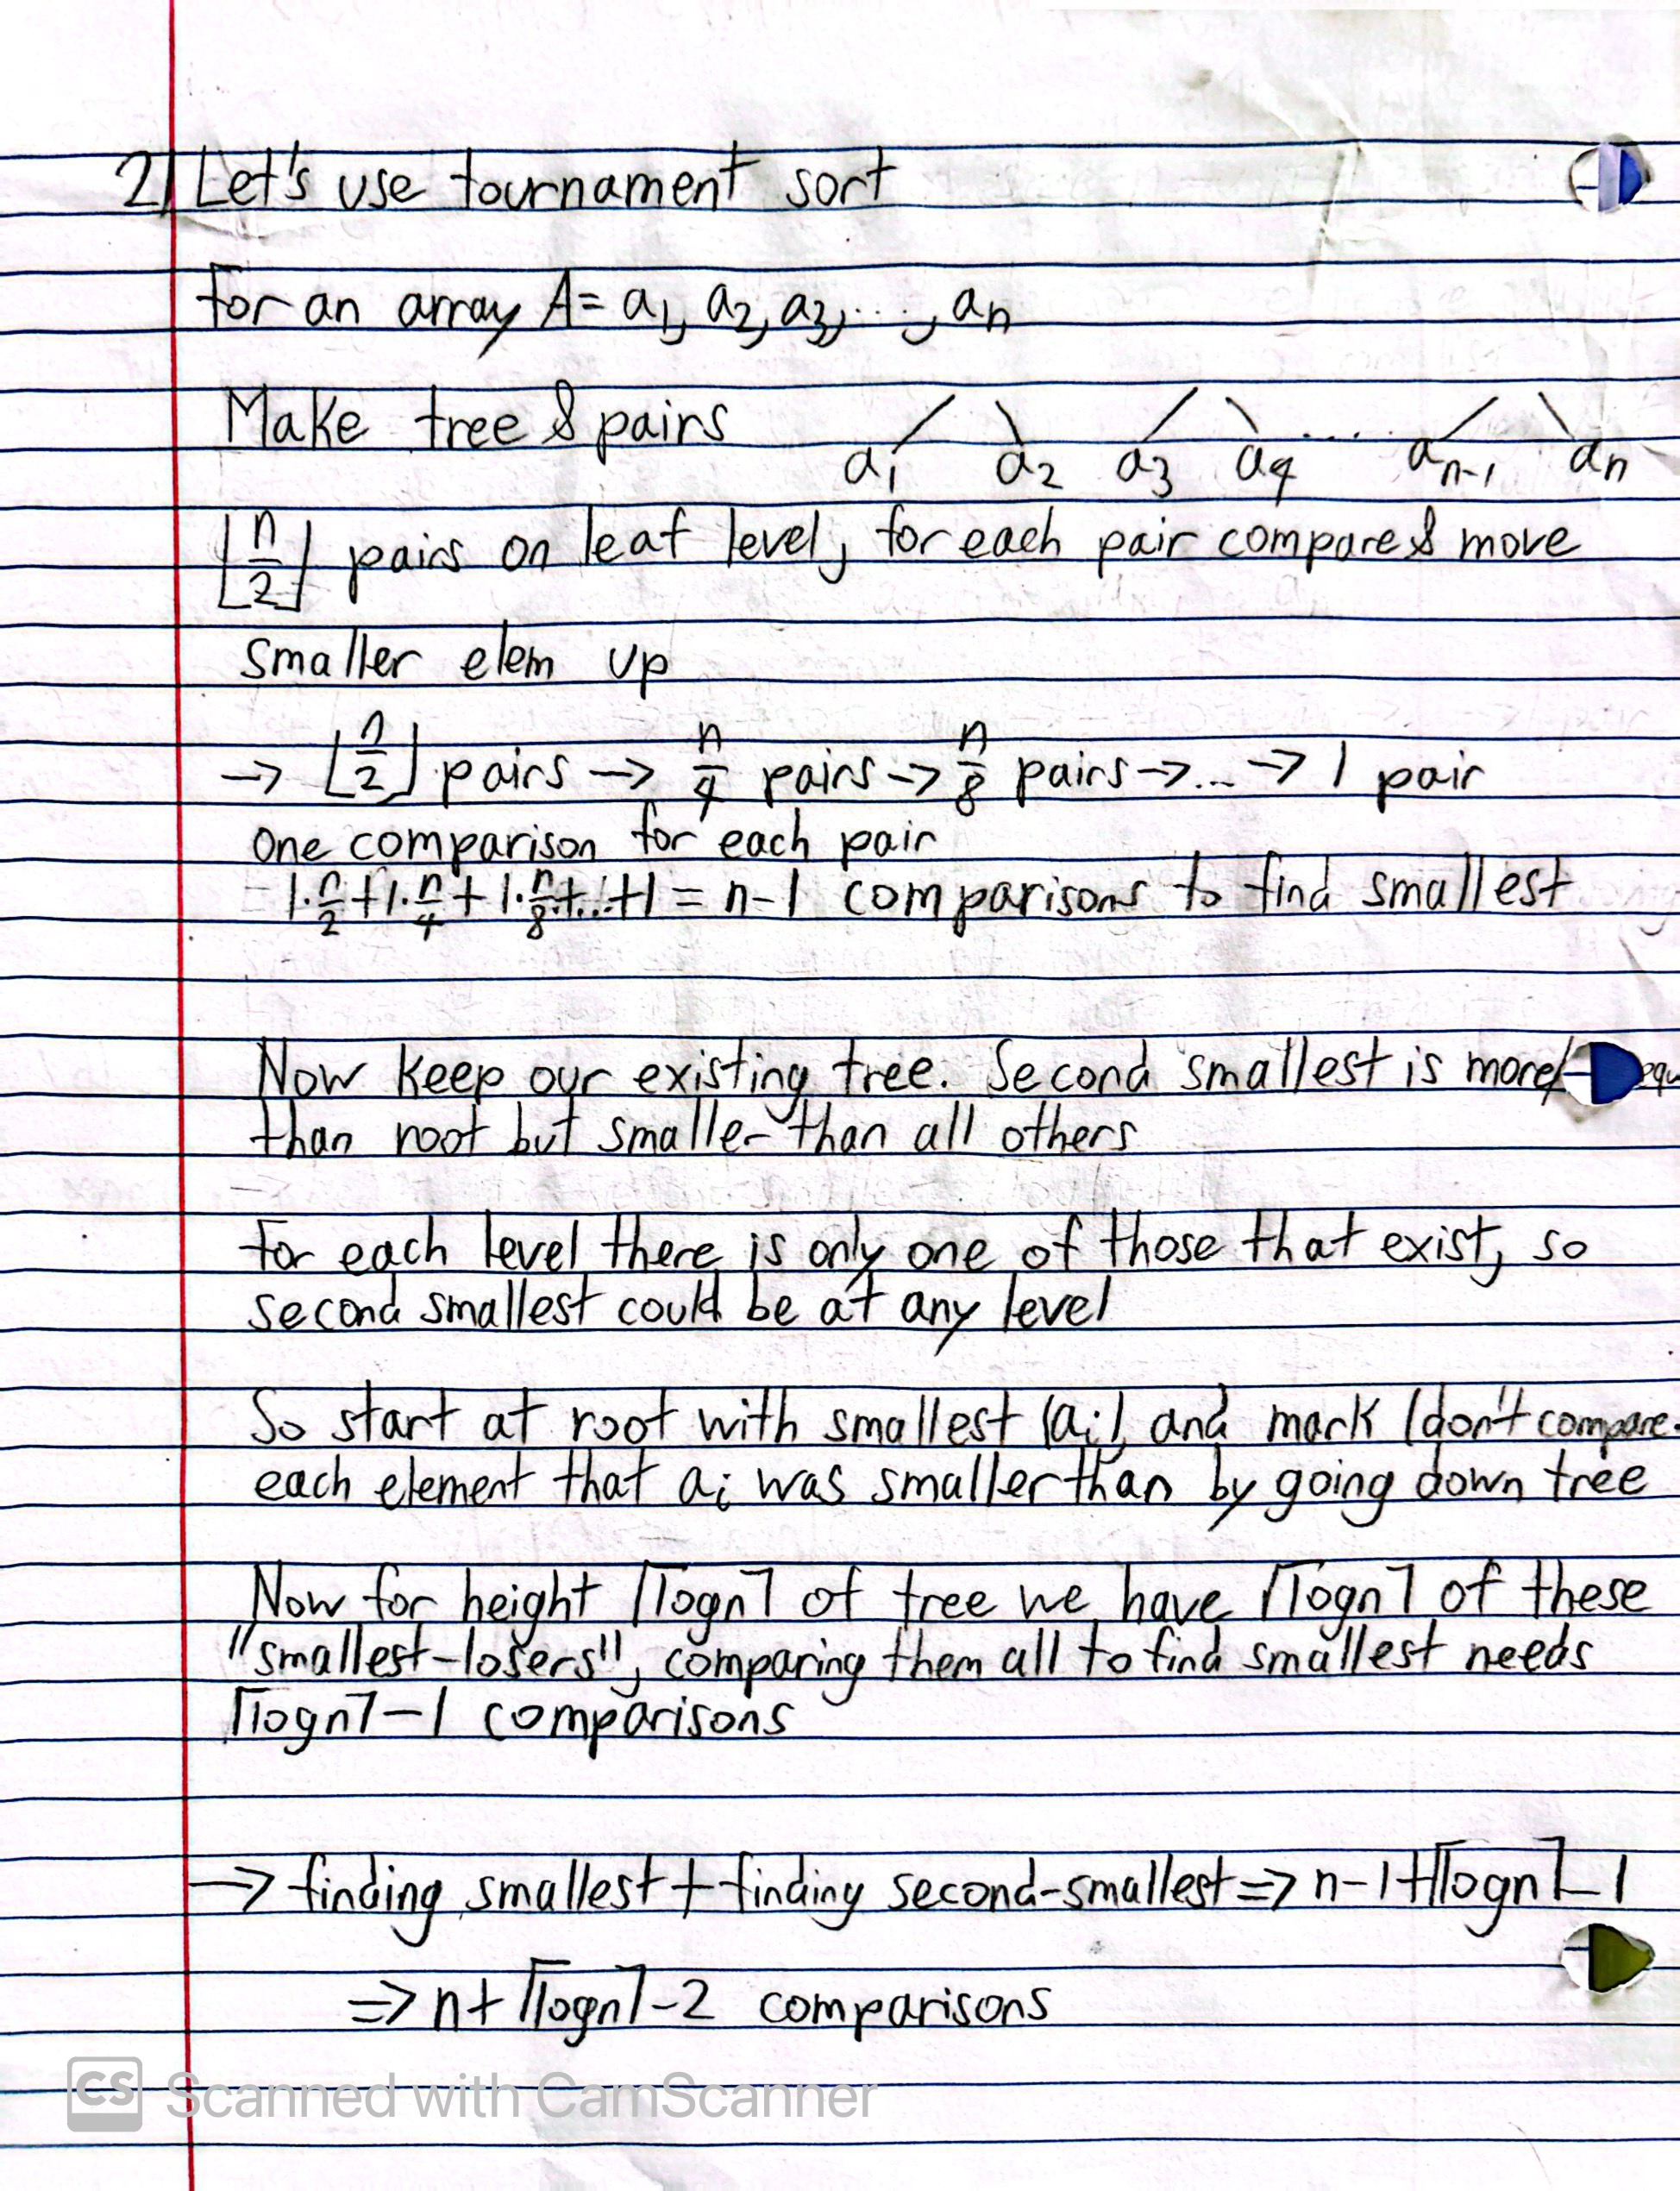 2) Let's use tournament sort
For an array A = a₁, a₂, a₃, ..., aₙ
Make tree & pairs
a₁ a₂ a₃ a₄ .... aₙ₋₁ aₙ
⌊n/2⌋ pairs on leaf level, for each pair compare & move
smaller elem up
→ ⌊n/2⌋ pairs → n/4 pairs → n/8 pairs → ... → 1 pair
one comparison for each pair
1·n/2 + 1·n/4 + 1·n/8 + ... + 1 = n-1 comparisons to find smallest
Now keep our existing tree. Second smallest is more/
than root but smaller than all others
For each level there is only one of those that exist, so
second smallest could be at any level
So start at root with smallest (aᵢ), and mark (don't compare
each element that aᵢ was smaller than by going down tree
Now for height ⌈logn⌉ of tree we have ⌈logn⌉ of these
"smallest-losers", comparing them all to find smallest needs
⌈logn⌉-1 comparisons
→ finding smallest + finding second-smallest ⇒ n-1+⌈logn⌉-1
⇒ n+⌈logn⌉-2 comparisons
CS Scanned with CamScanner